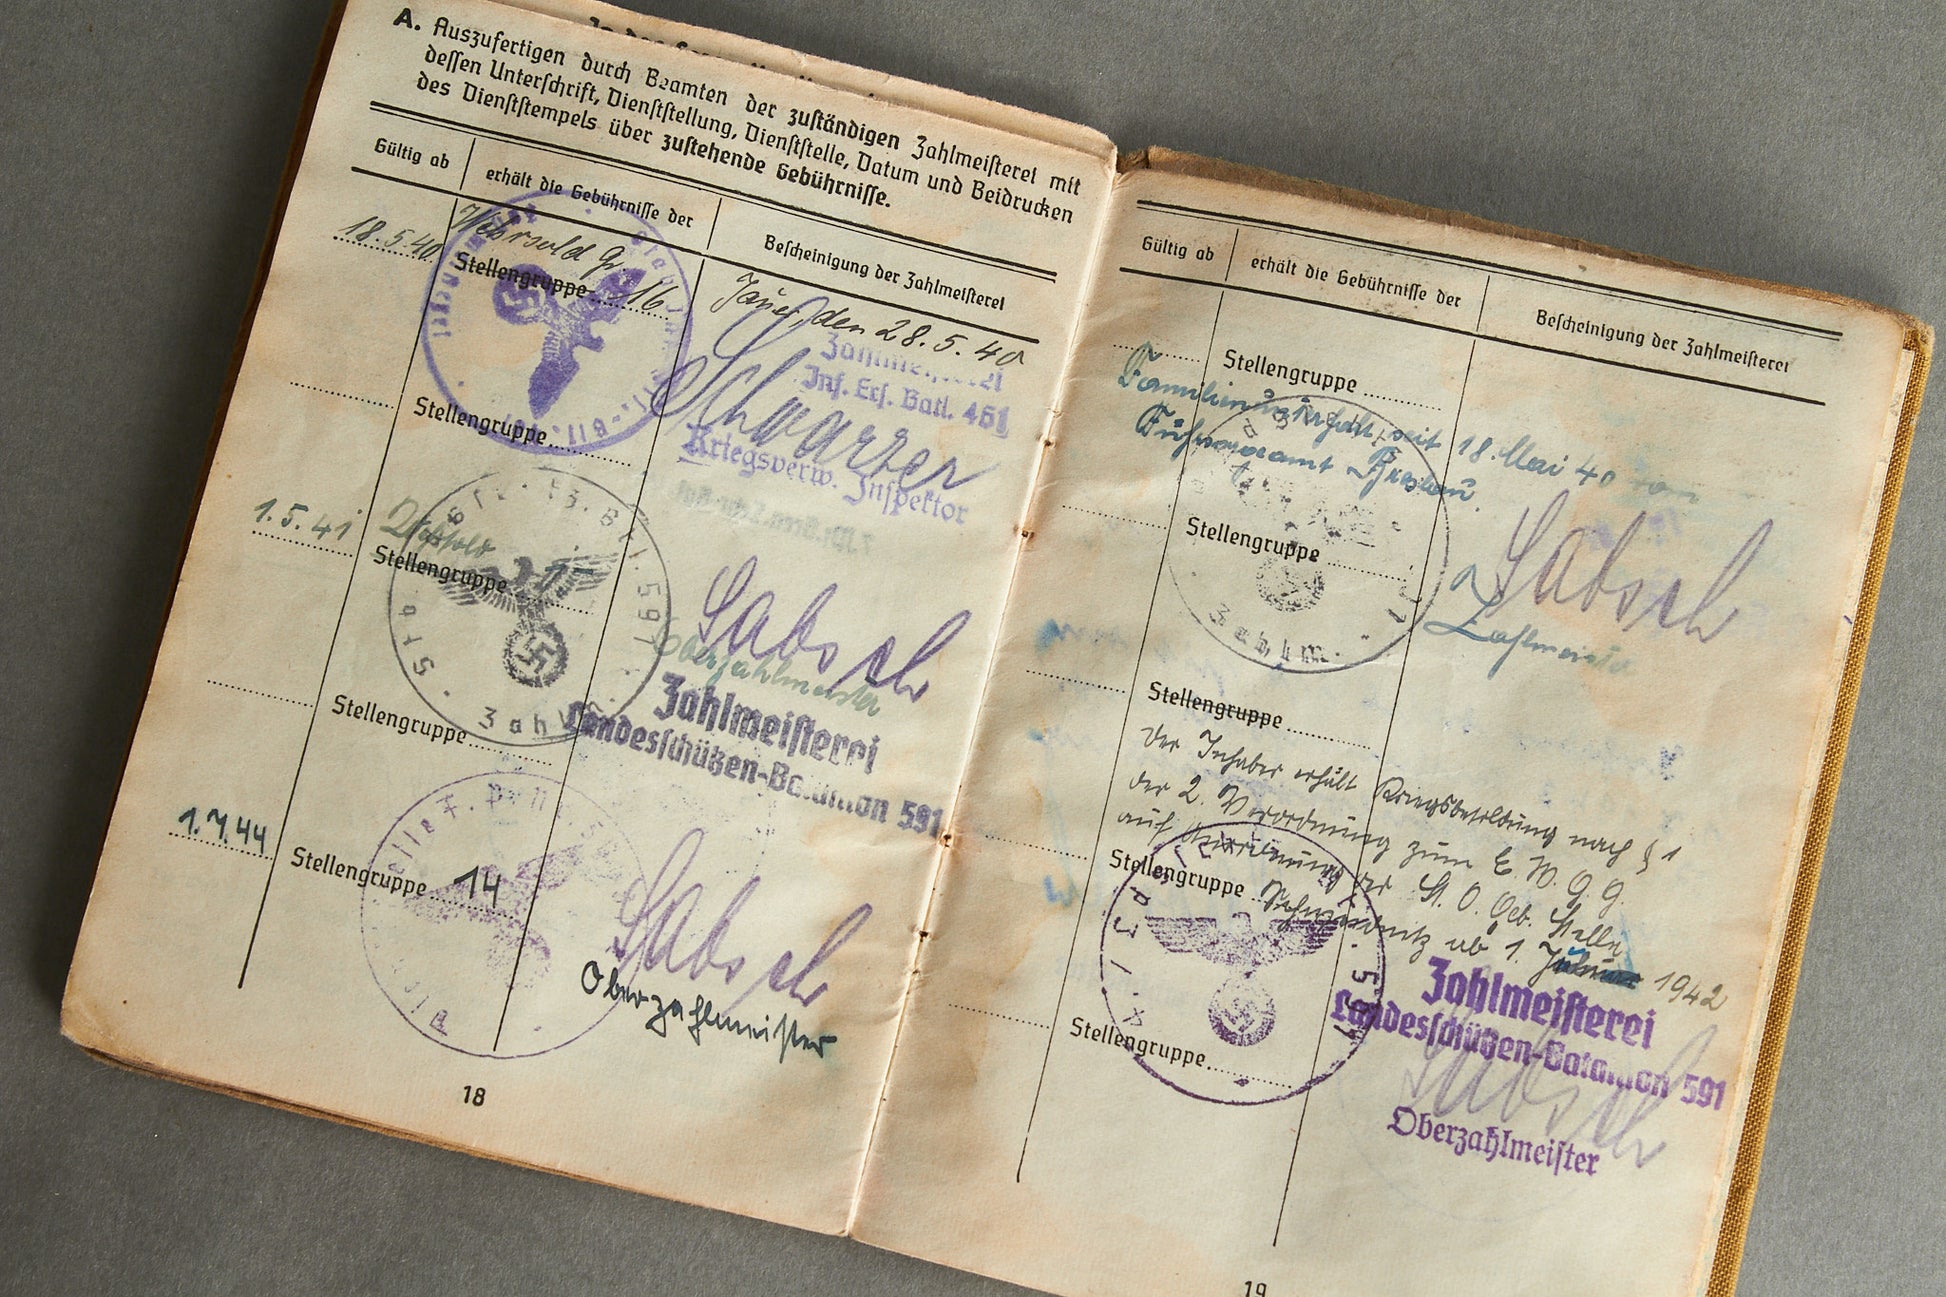 A. Auszufertigen durch Beamten der zuständigen Zahlmeisterei mit
dessen Unterschrift, Dienststellung, Dienststelle, Datum und Beidrucken
des Dienststempels über zustehende Gebührnisse.
Gültig ab
erhält die Gebührnisse der
Bescheinigung der Zahlmeisterei
18.5.40
Wehrsold Gr.
Stellengruppe 16
Jauer, den 28.5.40
Inf. Ers. Batl. 461
Schwarzer
Kriegsverw. Inspektor
Stellengruppe
1.5.41
Stellengruppe
Labsch
Oberzahlmeister
Zahlmeisterei
Landesschützen-Bataillon 591
Stellengruppe
1.7.44
Stellengruppe 14
Labsch
Oberzahlmeister
18
Gültig ab
erhält die Gebührnisse der
Bescheinigung der Zahlmeisterei
Stellengruppe
Familienunterhalt seit 18. Mai 40 von
Breslau.
Stellengruppe
Labsch
Zahlmeister
Stellengruppe
Der Inhaber erhält Kriegsbesoldung nach § 1
der 2. Verordnung zum E. W. G. G.
auf der St. O. Geb. Stelle
Stellengruppe
ab 1. 1942
Zahlmeisterei
Landesschützen-Bataillon 591
Labsch
Stellengruppe
Oberzahlmeister
19